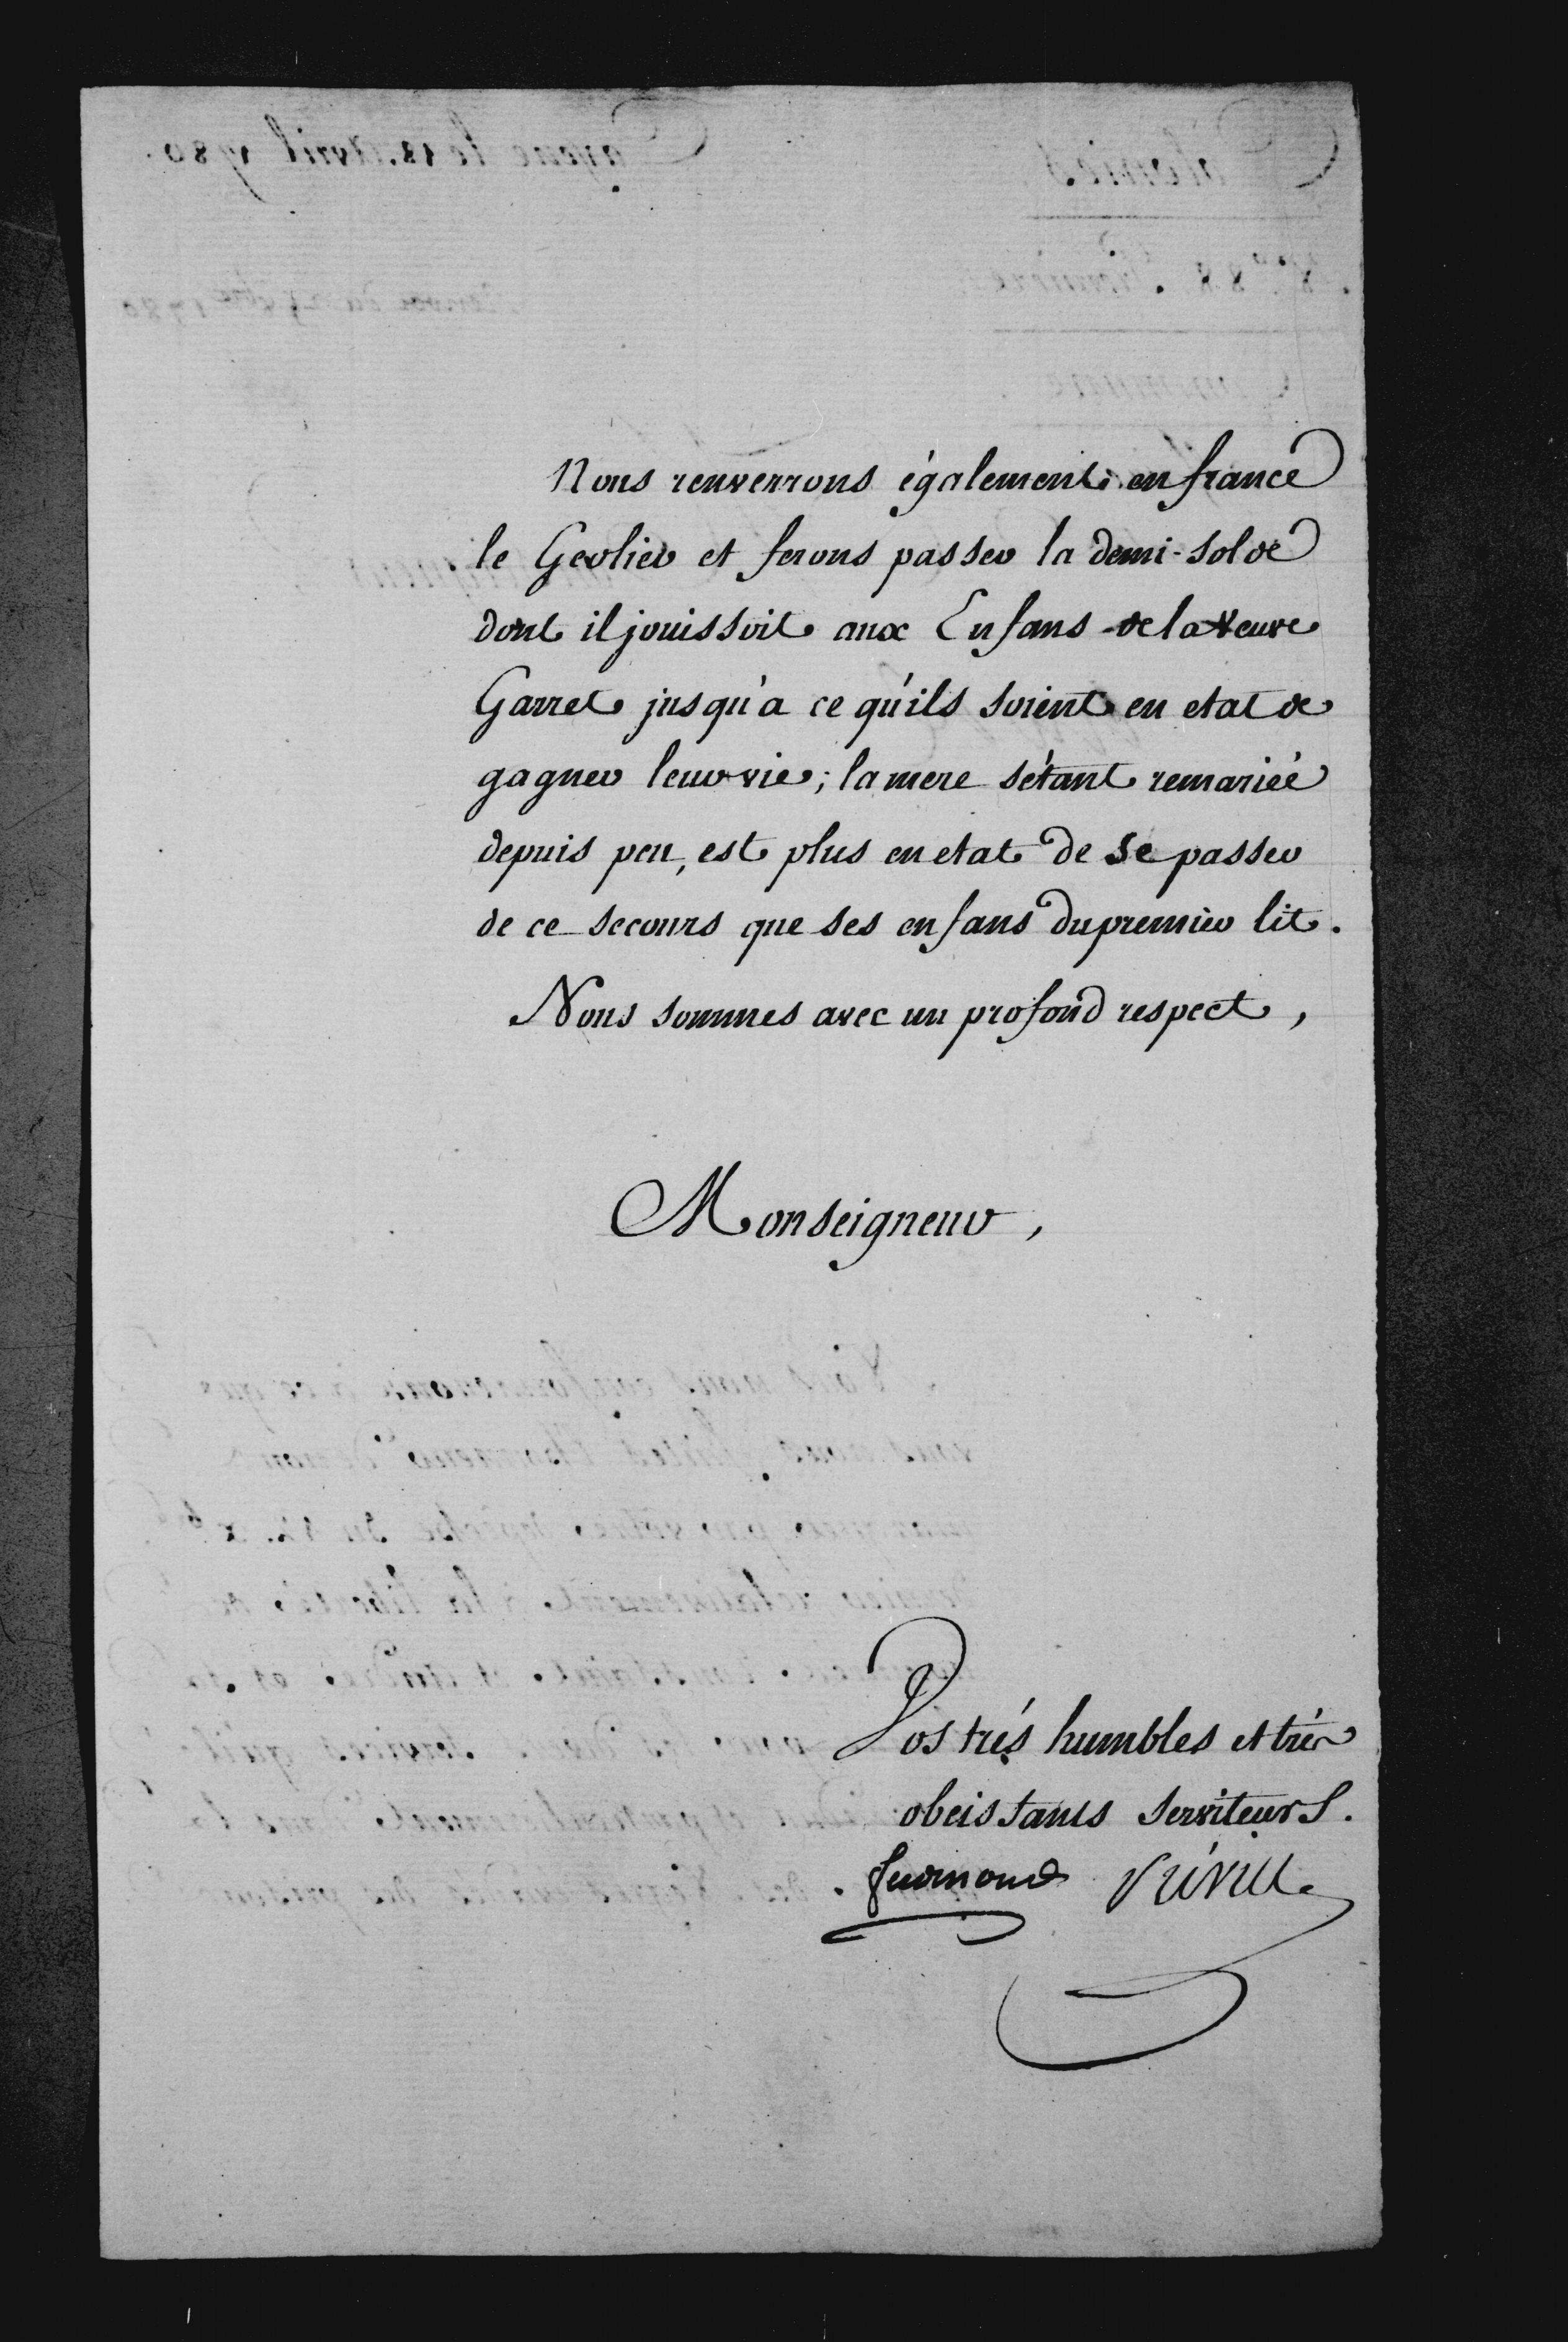 Nous renverrons également en france
le Geolier et ferons passer la demi-solde
dont il jouissoit aux Enfans de la Veuve
Garret jusqu'a ce qu'ils soient en etat de
gagner leur vie; la mere s'étant remariée
depuis peu, est plus en etat de se passer
de ce secours que ses enfans du premier lit.
Nous sommes avec un profond respect,
Monseigneur,
Vos trés humbles et trés
obeissants serviteurs.
fiedmond Préville